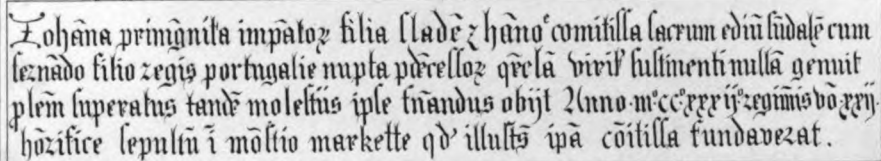 Johãna primõgnita impãtoꝝ filia flãdẽ ⁊ hãnoͤ comitissa sacrum ediũ sũdatẽ cum
feznãdo filio regis portugalie nupta pðcessoꝝ qrclã viriḷ sustinenti nullã genuit
plẽm superatus tandẽ molestiis ipse fnãndus obijt Anno · mͦ ccͦ xxxiijͦ regiminis vͦo xxij ·
hõrifice sepultũ ĩ mõstio markette qðʼ illustͣ ipã cõitissa fundaverat .